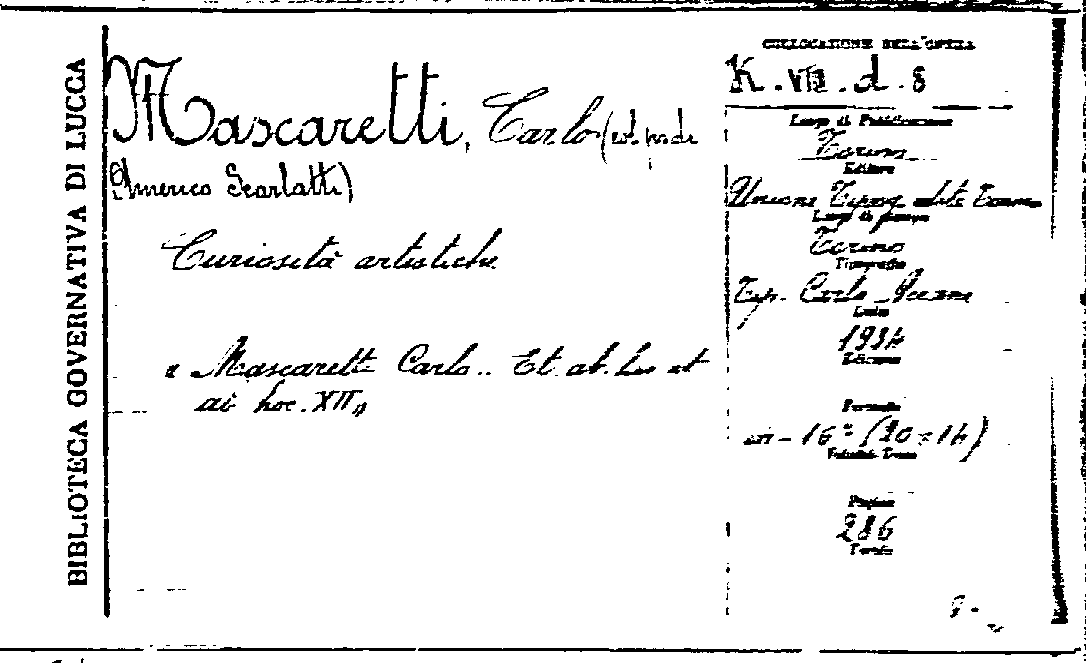 BIBLIOTECA GOVERNATIVA DI LUCCA
Mascaretti, Carlo
Americo Scarlatti)
Curiosità artistiche
« Mascaretti Carlo.. Et ab. hoc et
ab hac. XII»
COLLOCAZIONE DELL'OPERA
K. VIII. d. 8
Luogo di Pubblicazione
Torino
Editore
Unione Tipog. edit. Torin
Luogo di stampa
Torino
Tipografia
Tip. Carlo Accame
1934
Edizione
Formato
in-16° (20=14)
Pagine
286